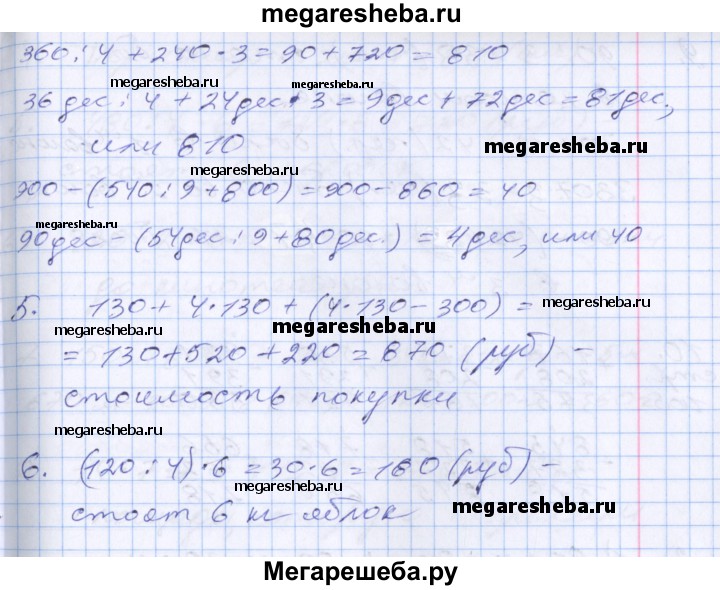 megaresheba.ru
360 : 4 + 240 · 3 = 90 + 720 = 810
megaresheba.ru megaresheba.ru
36 дес : 4 + 24дес · 3 = 9дес + 72дес = 81дес,
или 810 megaresheba.ru
megaresheba.ru
900 - (540 : 9 + 800) = 900 - 860 = 40
megaresheba.ru
90дес - (54дес : 9 + 80дес.) = 4дес, или 40
5. 130 + 4·130 + (4·130 - 300) = megaresheba.ru
megaresheba.ru megaresheba.ru
= 130 + 520 + 220 = 870 (руб) -
стоимость покупки
megaresheba.ru
6. (120 : 4)·6 = 30·6 = 180 (руб) -
megaresheba.ru
стоят 6 кг яблок megaresheba.ru
Мегарешеба.ру